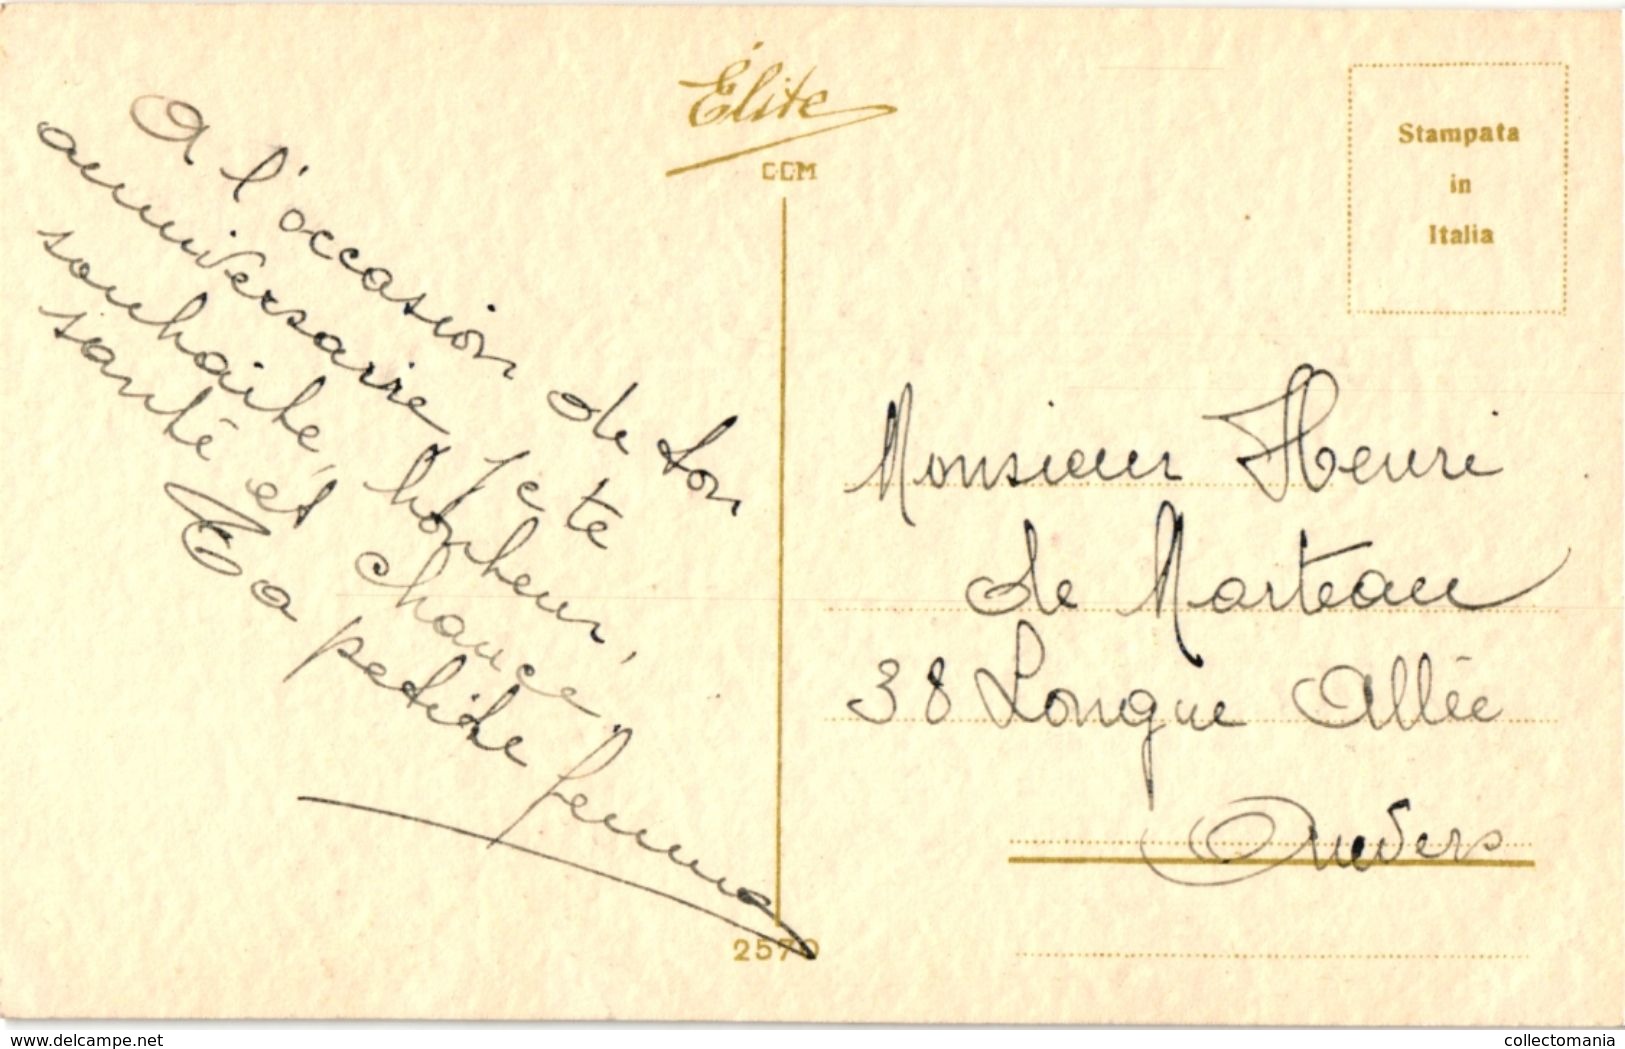 Élite
CCM
Stampata
in
Italia
A l'occasion de ton
anniversaire Je te
souhaite, bonheur,
santé et chance.
Ta petite femme
Monsieur Henri
de Marteau
38 Longue Allée
Anvers
2570
delcampe.net
collectomania